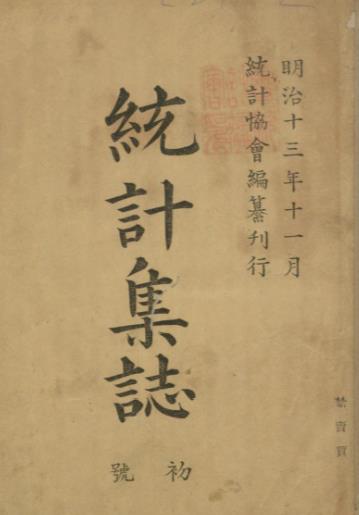 明治十三年十一月
統計協會編纂刊行
統計集誌
初號
禁賣買